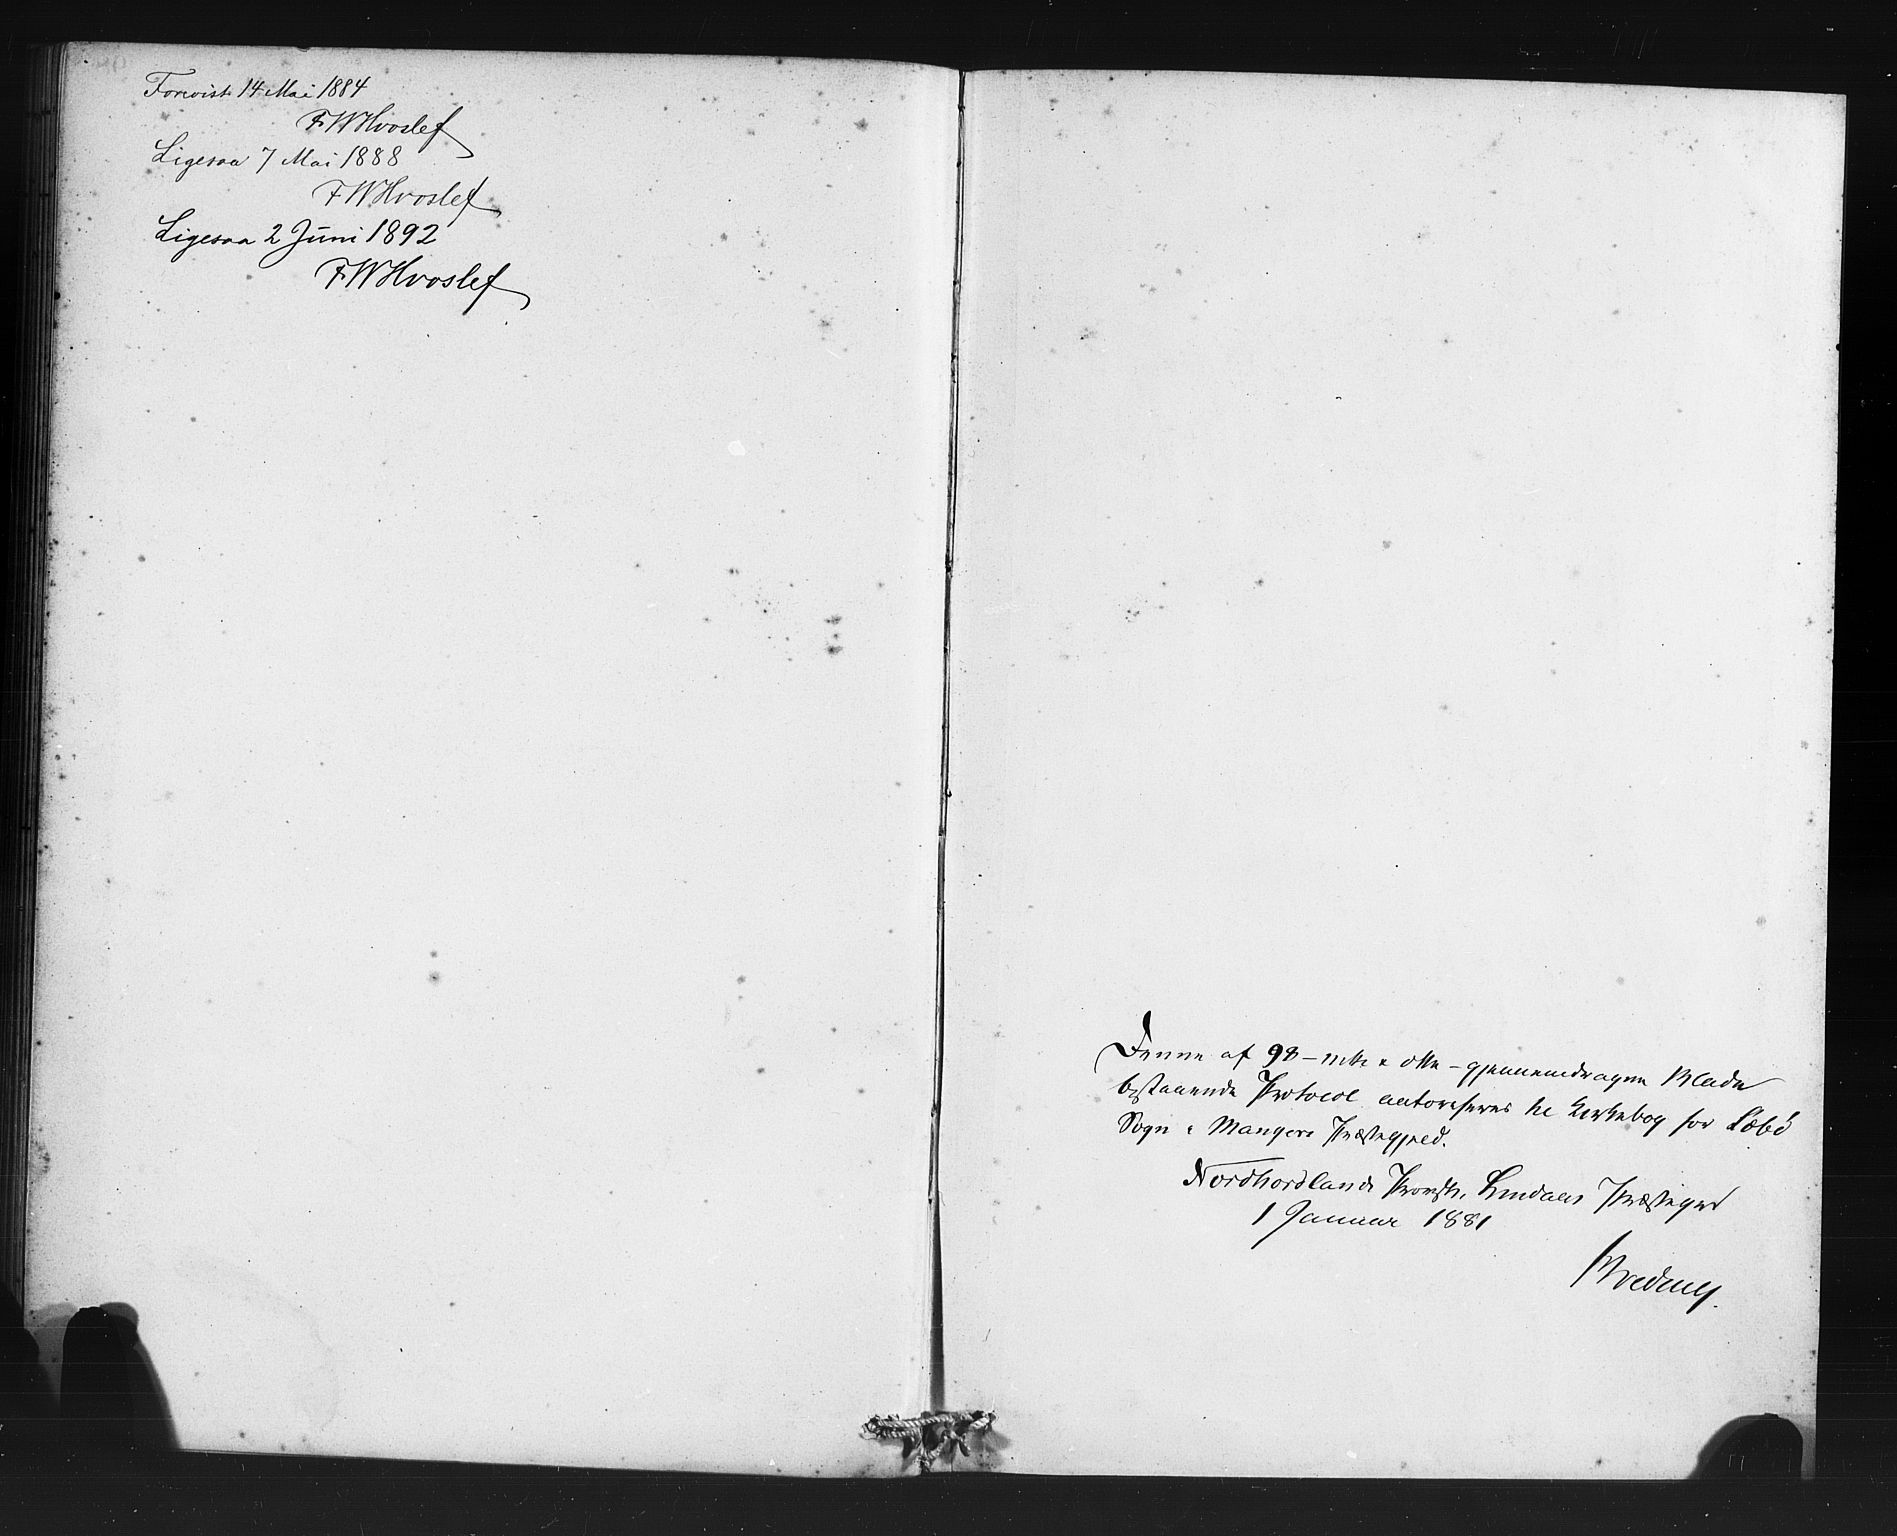 Forevist 14 Mai 1884
FWHvoslef
Ligesaa 7 Mai 1888
FWHvoslef
Ligesaa 2 Juni 1892
FWHvoslef
Denne af 98 – otte – gjennemdragne Blade
bestaaende Protocol autoriseres til Kirkebog for Sæbö
Sogn i Mangers Præstegjeld.
Nordhordlands Provsti, Lindaas Præstegrd
1 Januar 1881